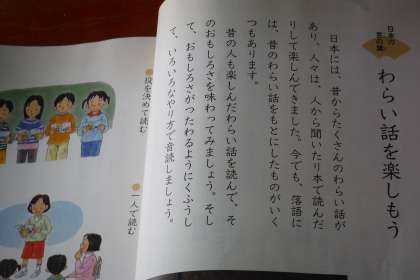 日本の
昔の話
わらい話を楽しもう
日本には、昔からたくさんのわらい話が
あり、人々は、人から聞いたり本で読んだ
りして楽しんできました。今でも、落語に
は、昔のわらい話をもとにしたものがいく
つもあります。
昔の人も楽しんだわらい話を読んで、そ
のおもしろさを味わってみましょう。そし
て、おもしろさがつたわるようにくふうし
て、いろいろなやり方で音読しましょう。
役を決めて読む
一人で読む